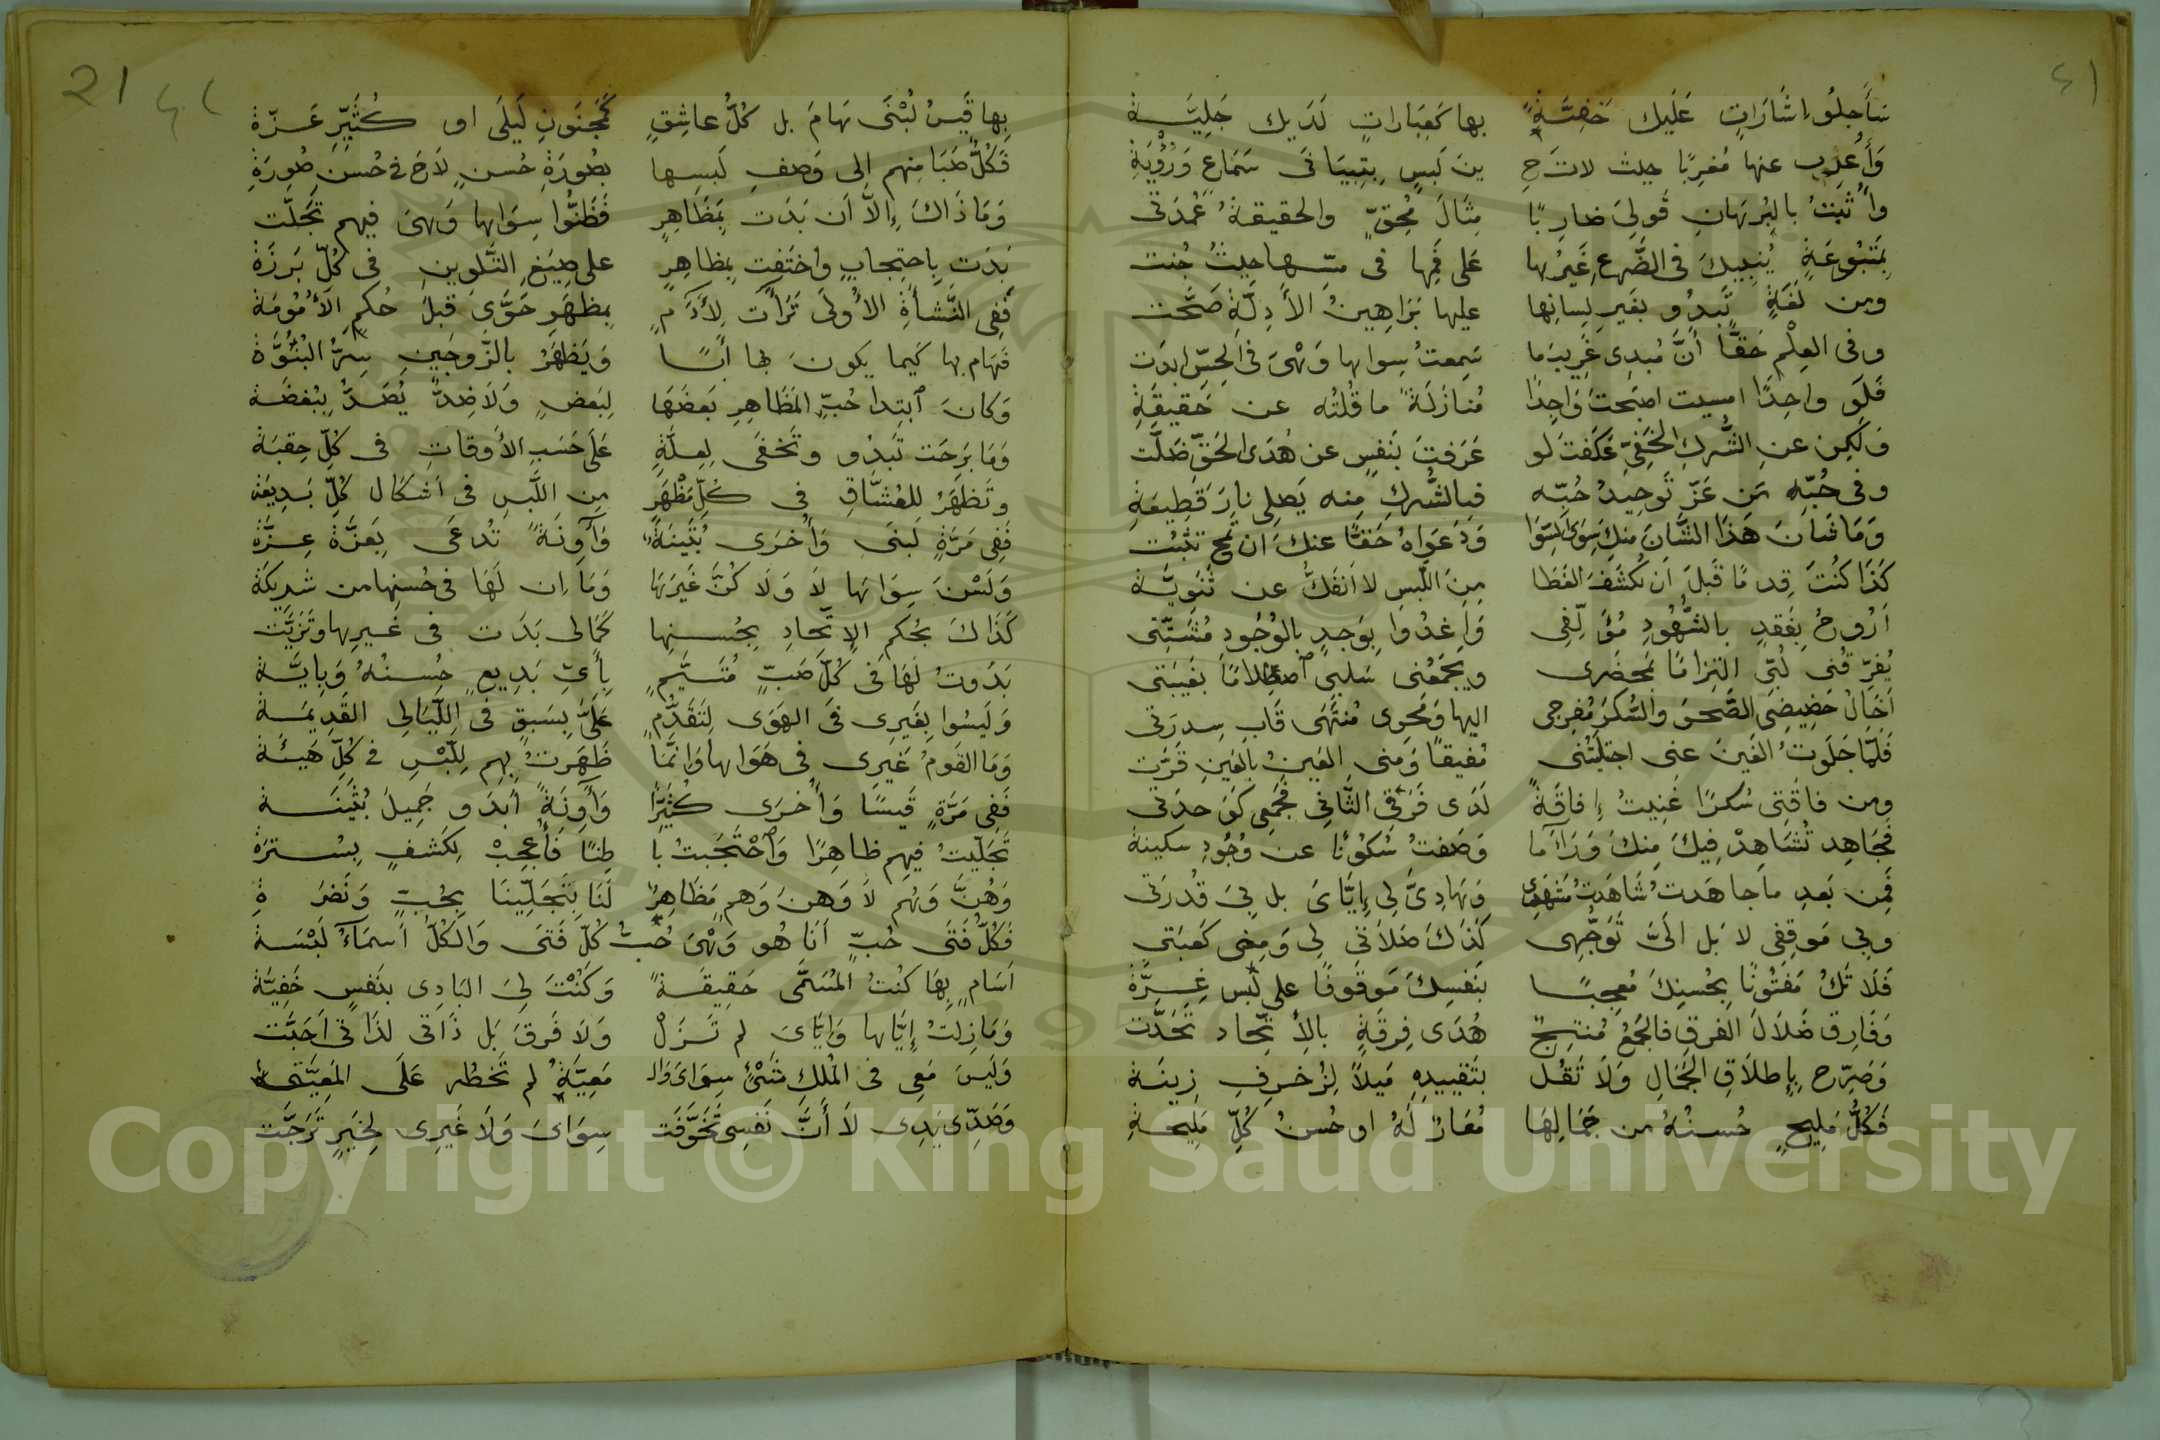 ٤١
سَأَجلُو اِشَارَاتٍ عَلَيكَ خَفِيَّةً بها كَعِبَارَاتٍ لَدَيكَ جَلِيَّة
وَأُعرِب عنها مُغرِبًا حيث لاتَ حِ ينَ لَبسٍ بِتِبيَانَى سَمَاعٍ وَرُؤْيَةِ
واُثبِتُ بالبُرهَانِ قَولِىَ ضارِبًا مِثَالَ مُحِقٍّ والحقيقةُ عُمدَتى
بِمَتبُوعَةٍ يُنبِيكَ فى الصَّرعِ غَيرُها عَلى فَمِها فى مسِّها حيثُ جُنت
ومن لُغَةٍ تَبدُو بغَيرِ لِسانِها عليها بَرَاهِينُ الأَدِلَّةِ صَحَّت
وفى العِلْمِ حَقًّا أنَّ مُبدِى غَرِيبِ ما سَمِعتُ سِواها وَهْىَ فى الحِسِّ ابدَت
فَلَو واحِدًا امسيت اصبَحتَ وَاجِدًا مُنازَلَةً ما قُلتُه عن حَقِيقَةِ
وَلكِن عنِ الشِّركِ الخَفِيِّ عَكَفتَ لو عَرَفتَ بنَفسٍ عن هُدَى الحَقِّ ضَلَّت
وفى حُبِّهِ مَن عَزّ تَوحِيدُ حُبِّه فبالشِّركِ مِنه يَصلِى نارَ قَطِيعَةِ
وَمَا شانَ هَذَا الشَّانَ مِنكَ سِوَى السِّوَا وَدَعَواهُ حَقًّا عنكَ ان تُمحَ تثبُت
كَذَا كُنتَ قِدمًا قَبلَ اَن يُكشَفَ الغَطَا مِنَ اللَّبسِ لا اَنفَكُّ عن ثَنَوِيَّة
اَرُوحُ بِفَقدٍ بالشُّهُودِ مُؤَلِّفِى وَاَغدُوا بِوَجدٍ بالوُجُودِ مُشَتِّتِى
يُفرِّقُنى لُبِّى التِزامًا بمَحضَرِى ويَجمَعُنى سَلبِى اصطِلامًا بغَيبَتى
اَخَالُ حَضِيضِى الصَّحوَ والسُّكرَ مُفرِجِى اليها وَمَحوى مُنتَهَى قَابِ سِدرَتى
فَلَمَّا جَلَوتُ الغَينَ عنى اجتلَيتُنى مُفيقًا وَمنى العَينُ بالعَينِ قَرَّت
ومن فاقَتِى سُكرًا غَنِيتُ إفاقَةً لَدَى فَرقِى الثَّانِى فجَمعِى كَوَحدَتى
فجَاهِد تُشَاهِدْ فِيكَ مِنكَ وَرَاءَ ما وَصَفتُ سُكونًا عن وُجُودِ سكينة
فمِن بَعدِ ما جاهَدت شَاهَدتُ مَشهَدِى وَهَادِىَّ لِى إيَّاىَ بل بِىَ قُدرَتى
وبِى مَوقِفِى لا بَل الَىَّ تَوَجُّهِى كَذَاكَ صَلاَتى لِى وَمِنى كَعبَتى
فَلاَ تَكُ مَفتُونًا بحُسنِكَ مُعجِبًا بنَفسِكَ مَوقُوفًا على لَبسِ غِرَّةِ
وَفَارِق ضَلاَلَ الفرق فالجَمعُ مُنتِجٌ هُدَى فِرقَةٍ بالاِتِّحاد تَحَدَّت
وَصَرِّح بِإطلاَقِ الجَمَالِ وَلاَ تَقُل بتَقييدِهِ مَيلاً لِزُخرفِ زِينَة
فَكُلُّ مَلِيحٍ حُسنُهُ من جَمَالِهَا مُعَارٌ لَهُ او حُسنُ كُلِّ مَلِيحَةِ
21 ٤٢
بِها قَيسُ لُبْنَى هَامَ بل كُلُّ عاشِقٍ كَمَجنُونِ لَيلَى او كُثَيِّرِ عَزّةِ
فَكُلٌّ صَبَا مِنهم اِلى وَصفِ لَبسِها بصُورَةِ حُسنٍ لاَحَ فى حُسنِ صُورَةِ
وَمَا ذَاكَ إِلاَّ اَن بَدَت بمَظَاهِرٍ فَظَنُّوا سِوَاها وَهىَ فيهم تَجَلَّت
بَدَت بِاحتِجابٍ واختَفَت بمظاهِرٍ على صِيَغِ التَّلوينِ فى كُلِّ بَرزَةِ
فَفِى النَّشأَةِ الاُولَى تَرَأَت لِأَدَمٍ بمَظهَرِ حَوَّى قبلَ حُكمِ الأُمُومَة
فَهَام بها كَيما يكونَ لها أَبًا وَيَظهَرُ بالزَّوجَينِ سِرُّ البُنُوَّة
وَكانَ ابتِدا حُبِّ المَظَاهِرِ بَعضَهَا لِبَعضٍ وَلاَ ضِدٌّ يُصَدُّ بِبُغضَة
وَمَا بَرِحَت تَبدُو وتَخفَى لِعِلَّةٍ عَلَى حَسَبِ الأَوقاتِ فى كُلِّ حِقبَة
وتَظهَرُ للعُشَّاقِ فى كُلِّ مَظْهَرٍ مِنِ اللَّبسِ فى اَشكالِ كُلِّ بَدِيعَة
فَفِى مَرَّةٍ لُبنَى وَأُخرَى بُثَينَةً وَآوِنَةً تُدعَى بِعَزَّةِ عِزَّةِ
وَلَسْنَ سِوَاهَا لاَ وَلَا كُنَّ غَيرَهَا وَمَا اِن لَهَا فى حُسنِها من شريكَة
كَذَاكَ بحُكمِ الِاتِّحادِ بِحُسنِها كَمَا لى بَدَت فى غَيرِها وتَزَيَّت
بَدَوتُ لَهَا فى كُلِّ صَبٍّ مُتَيَّمٍ بِأىِّ بَدِيعٍ حُسنُهُ وَبِايَّة
وَلَيسُوا بِغَيرِى فى الهَوَى لِتَقَدُّمٍ عَلَىَّ بِسَبقٍ فى اللَّيَالِى القَدِيمَة
وَمَا القَومُ غَيرِى فى هَوَاها وَاِنَّمَا ظَهَرتُ بِهِم لِلَّبْسِ فى كُلِّ هَيئَة
فَفِى مَرَّةٍ قَيسًا وَأُخرَى كُثَيِّرًا وَآوِنَةً أبدُو جَمِيلَ بُثَينَة
تَجَلَّيتُ فيهِم ظاهِرًا وَاحْتَجَبتُ با طِنًا فَأَعجِبْ لِكَشفٍ بِسُترَة
وَهُنَّ وَهُم لاَ وَهنَ وَهمٍ مَظَاهِرٌ لَنَا بِتَجَلِّينَا بِحُبٍّ وَنَضرَةِ
فَكُلُّ فَتَى حُبٍّ اَنَا هُو وَهْىَ حُبُّ كُلِّ فَتَى وَالكُلُّ اَسمَاءُ لَبْسَة
اَسَامٍ بِهَا كُنتُ المُسَمَّى حَقِيقَةً وَكُنْتُ لِىَ البَادِى بنَفسٍ خَفِيَّة
وَمَا زِلتُ إيَّاها وَايَّاىَ لم تَزَلْ وَلَا فَرقَ بَل ذَاتى لذَاتى اَحَبَّت
وَلَيسَ مَعِى فى المُلكِ شَىْءٌ سِوَاىَ وَالـ مَعِيَّةُ لم تَخطُر عَلَى المَعِيَّتى
وَصَدِّى يَدِى لاَ أَنَّ نَفسِى تَخَوَّفَت سِوَاىَ وَلاَ غَيرِى لِخَيرٍ تَرَجَّت
Copyright © King Saud University